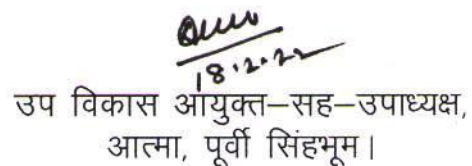 18.2.22
उप विकास आयुक्त–सह–उपाध्यक्ष,
आत्मा, पूर्वी सिंहभूम।